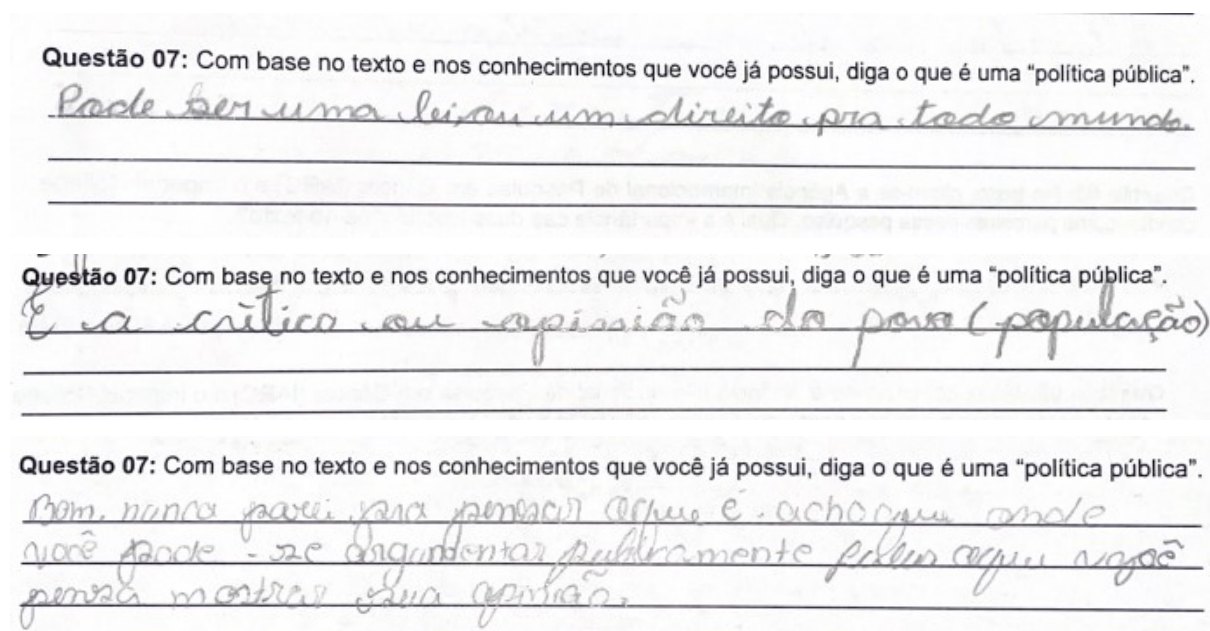 Questão 07: Com base no texto e nos conhecimentos que você já possui, diga o que é uma “política pública”.
Pode ser uma lei, ou um direito pra todo mundo.
Questão 07: Com base no texto e nos conhecimentos que você já possui, diga o que é uma “política pública”.
É a crítica ou opinião do povo (população)
Questão 07: Com base no texto e nos conhecimentos que você já possui, diga o que é uma “política pública”.
Bom, nunca parei pra pensar oque é. acho que onde
você pode - se argumentar publicamente oque você
pensa mostrar sua opinião.